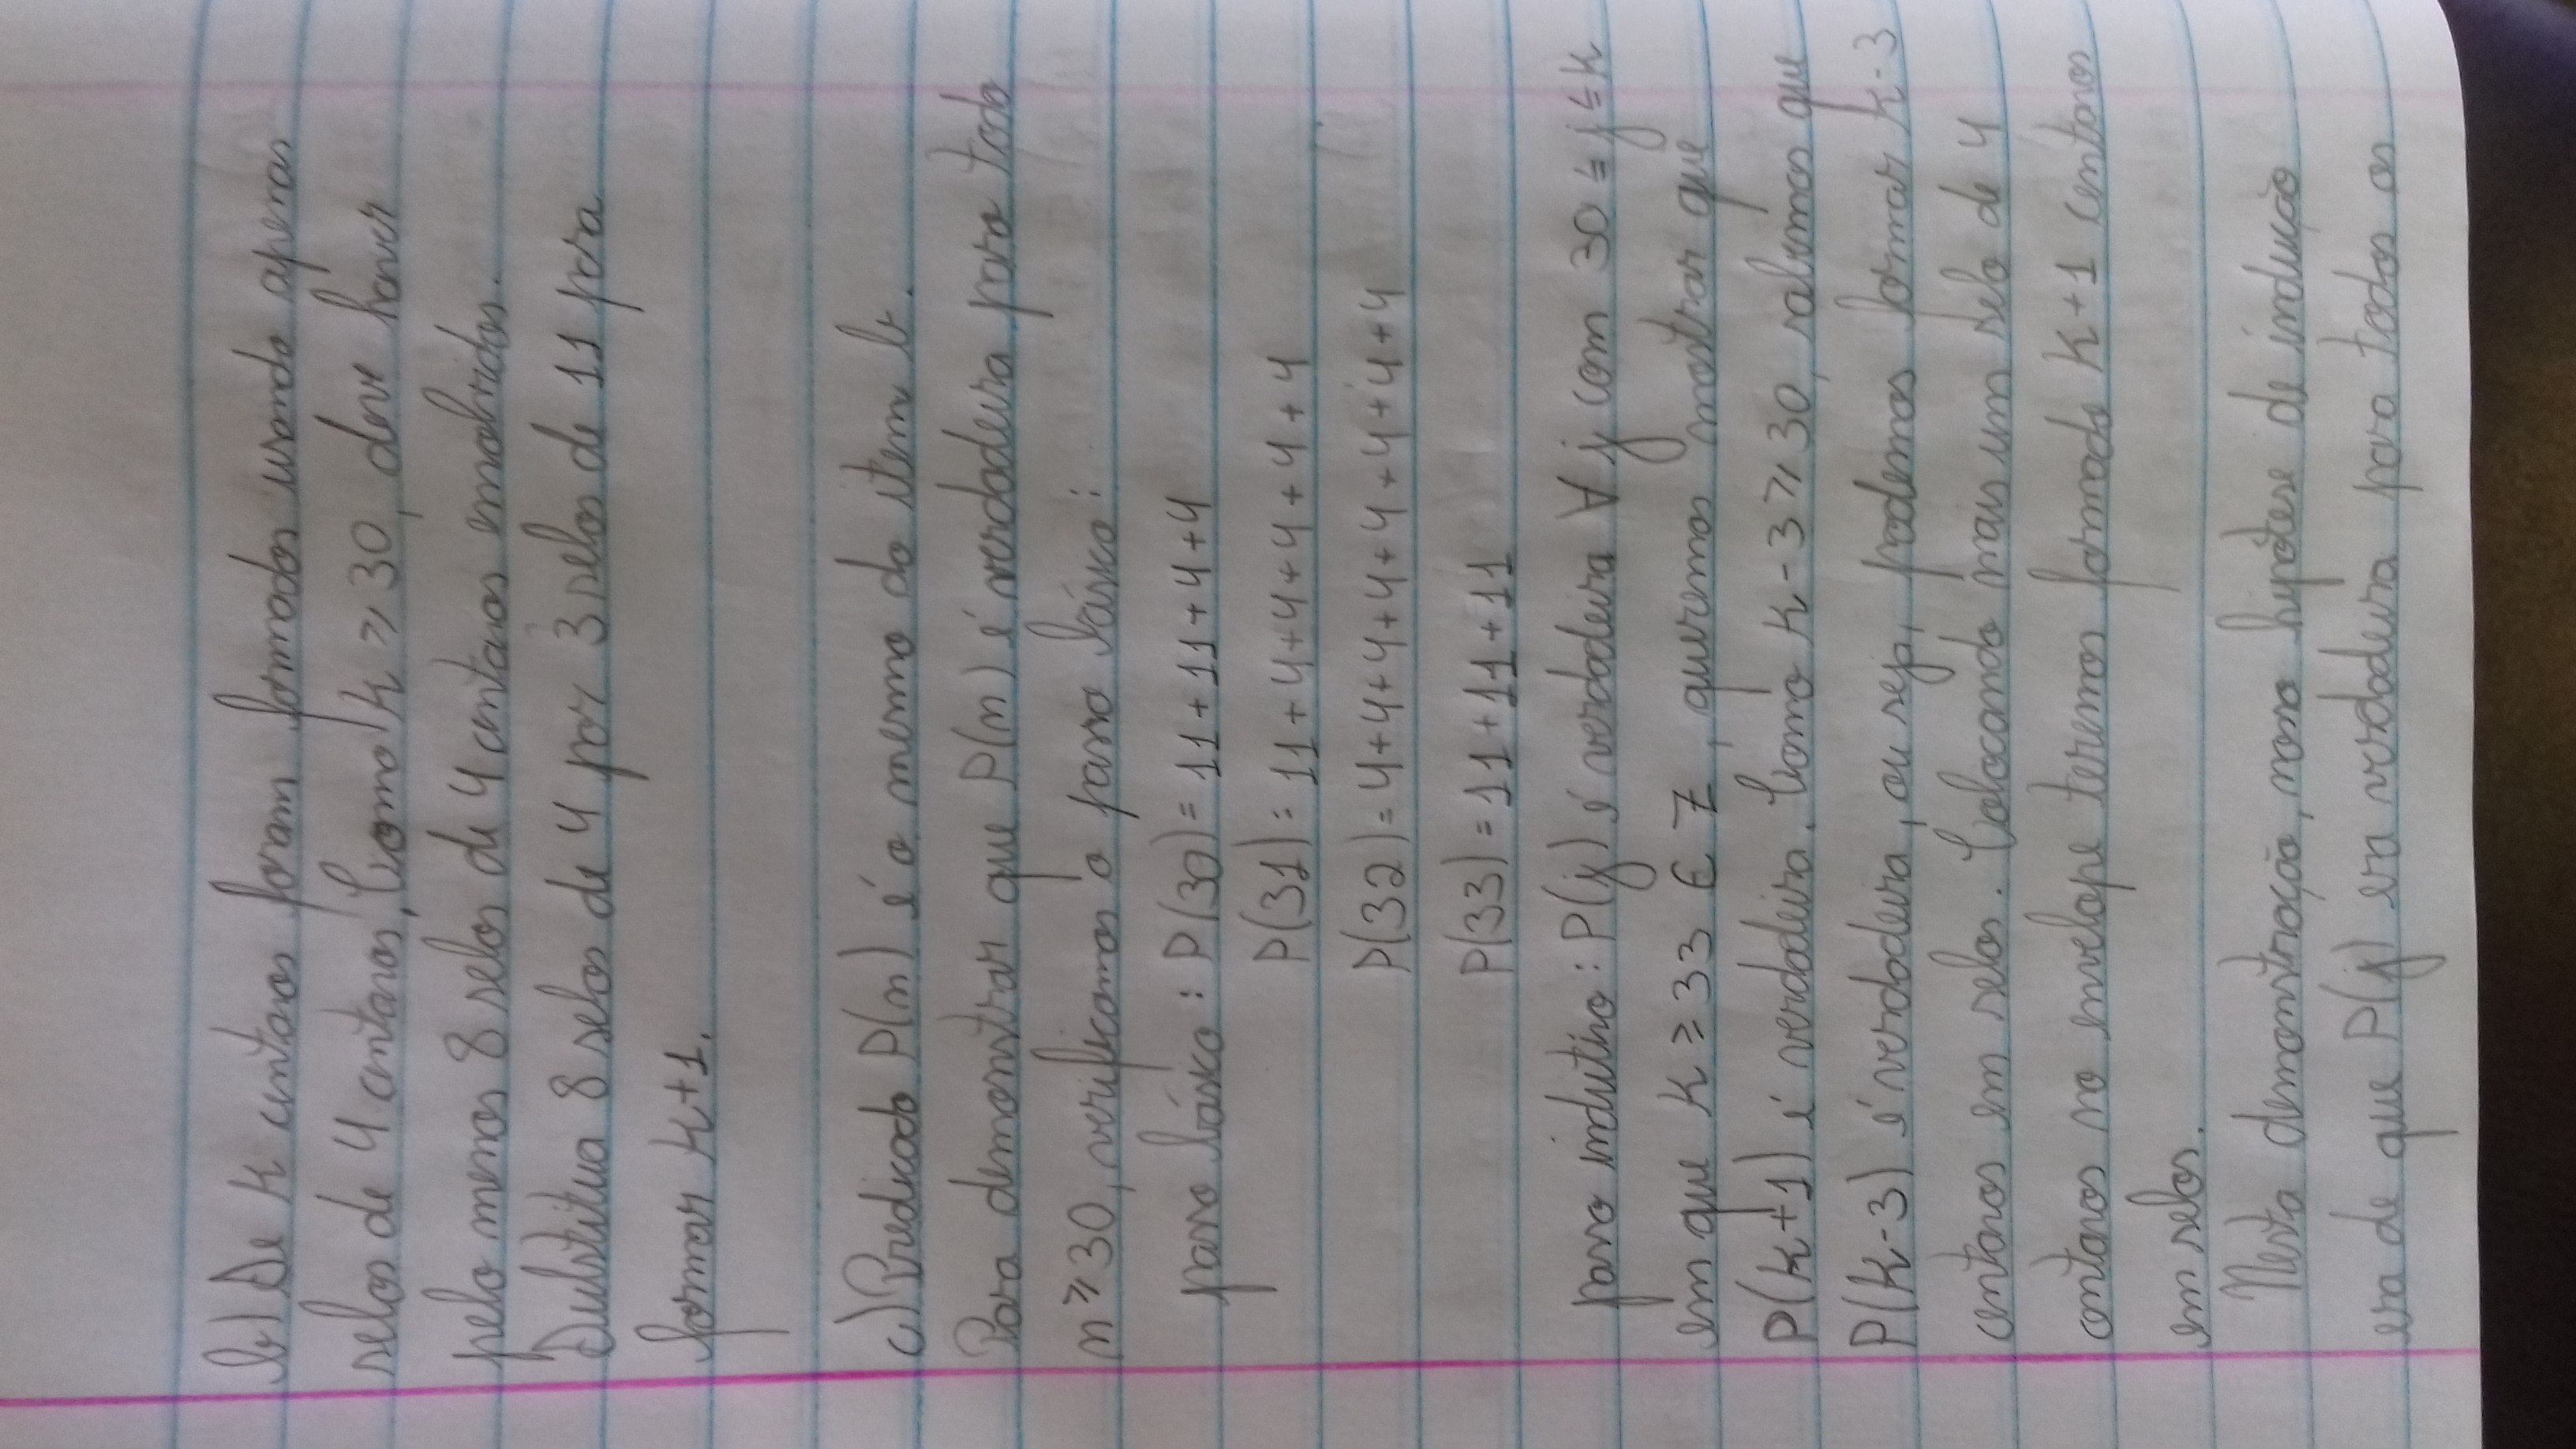 b) Se k centavos foram formados usando apenas
selos de 4 centavos, Como k ⩾ 30, deve haver
pelo menos 8 selos de 4 centavos envolvidos.
Substitua 8 selos de 4 por 3 selos de 11 para
formar k+1.
c) Predicado P(n) é o mesmo do item b.
Para demonstrar que P(n) é verdadeira para todo
n ⩾ 30, verificamos o passo básico:
passo básico: P(30) = 11+11+4+4
P(31) = 11+4+4+4+4+4
P(32) = 4+4+4+4+4+4+4+4
P(33) = 11+11+11
passo indutivo: P(j) é verdadeira ∀ j com 30 ≤ j ≤ k
em que k ≥ 33 ∈ Z, queremos mostrar que
P(k+1) é verdadeira. Como k-3 ⩾ 30, sabemos que
P(k-3) é verdadeira, ou seja, podemos formar k-3
centavos em selos. Colocando mais um selo de 4
centavos no envelope teremos formado k+1 centavos
em selos.
Nesta demonstração, nossa hipótese de indução
era de que P(j) era verdadeira para todos os